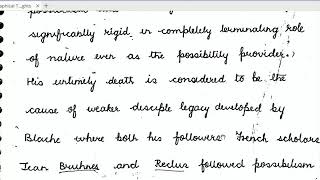 aphical T...ghts
significantly rigid in completely terminating role
of nature ever as the possibility provider.
His untimely death is considered to be the
cause of weaker desciple legacy developed by
Blache where both his followers French scholars
Jean Bruhnes and Reclus followed possibilism